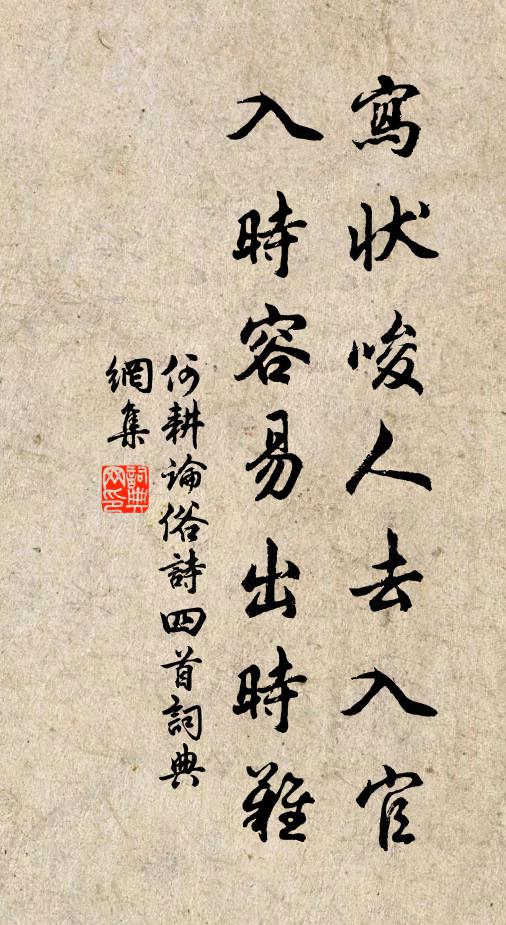 寫狀唆人去入官
入時容易出時難
何耕論俗詩四首詞典
網集
詞典
网印